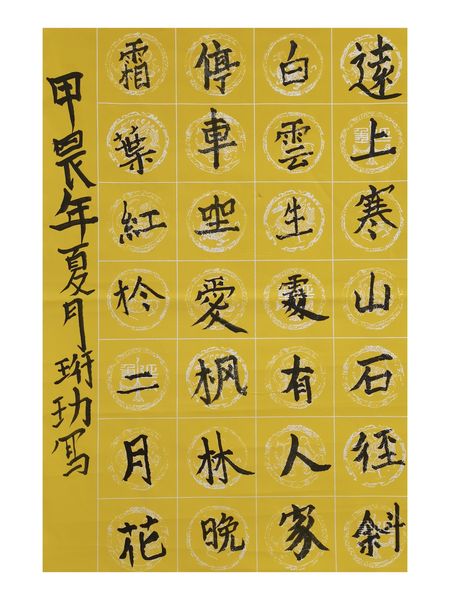 逺上寒山石径斜
白雲生處有人家
停車坐愛枫林晚
霜葉紅扵二月花
甲晨年夏月珩玏寫